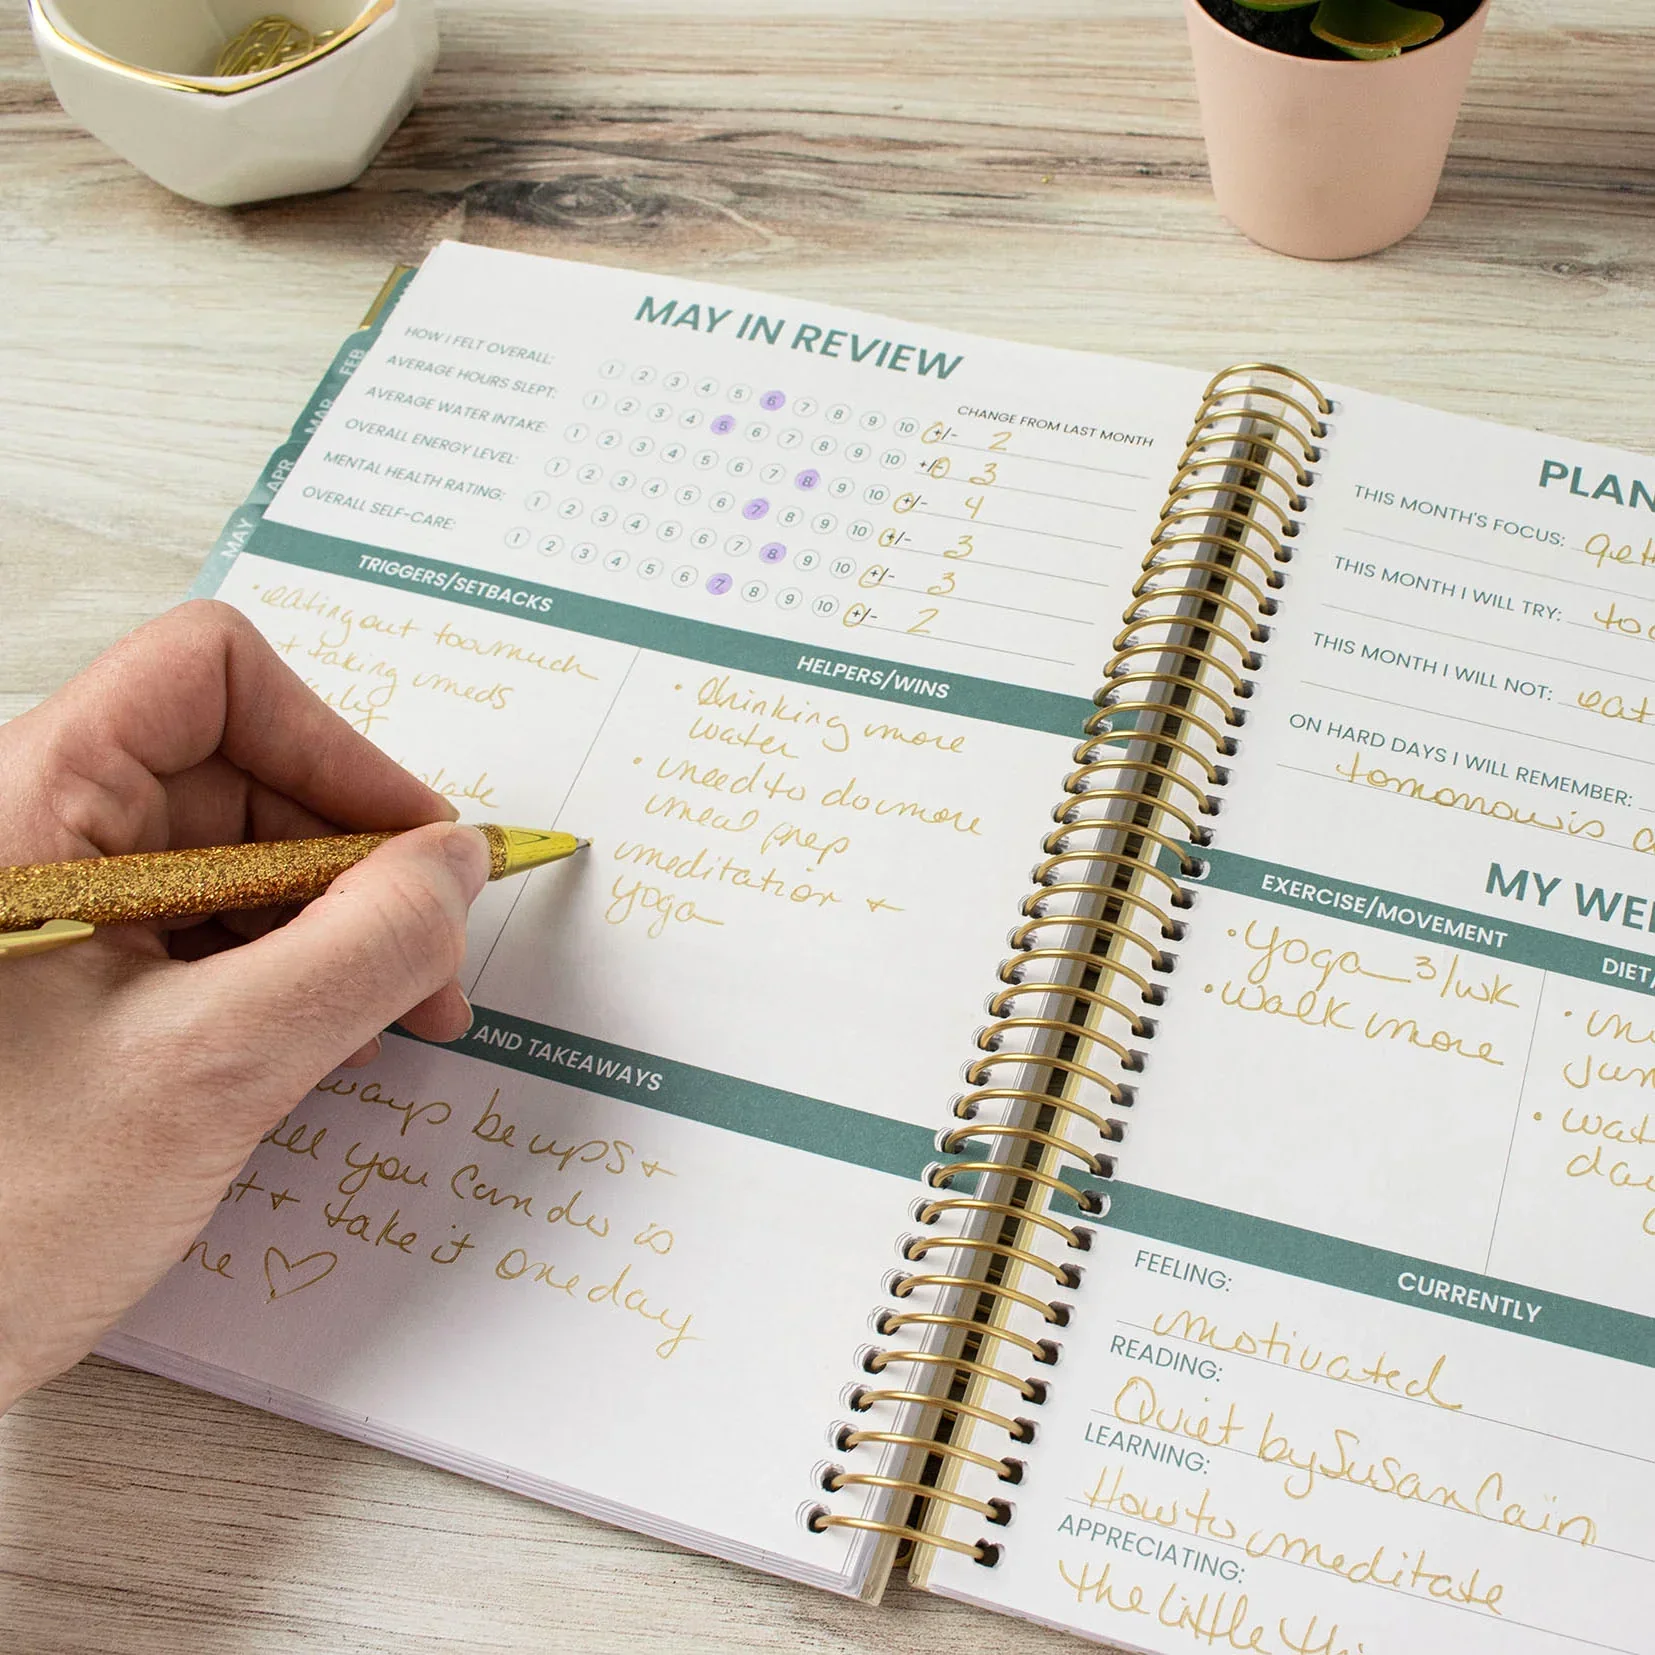 FEB
MAR
APR
MAY
MAY IN REVIEW
CHANGE FROM LAST MONTH
HOW I FELT OVERALL: 1 2 3 4 5 6 7 8 9 10 +/- 2
AVERAGE HOURS SLEPT: 1 2 3 4 5 6 7 8 9 10 +/- 3
AVERAGE WATER INTAKE: 1 2 3 4 5 6 7 8 9 10 +/- 4
OVERALL ENERGY LEVEL: 1 2 3 4 5 6 7 8 9 10 +/- 3
MENTAL HEALTH RATING: 1 2 3 4 5 6 7 8 9 10 +/- 3
OVERALL SELF-CARE: 1 2 3 4 5 6 7 8 9 10 +/- 2
TRIGGERS/SETBACKS
• eating out too much
taking meds
HELPERS/WINS
• drinking more
water
• need to do more
meal prep
meditation +
yoga
AND TAKEAWAYS
be ups +
you can do is
+ take it one day
PLAN
THIS MONTH'S FOCUS:
THIS MONTH I WILL TRY: to
THIS MONTH I WILL NOT: eat
ON HARD DAYS I WILL REMEMBER:
tomorrow is a
MY WE
EXERCISE/MOVEMENT
• yoga 3/wk
• walk more
DIET/
CURRENTLY
FEELING:
motivated
READING:
Quiet by Susan Cain
LEARNING:
How to meditate
APPRECIATING:
the little